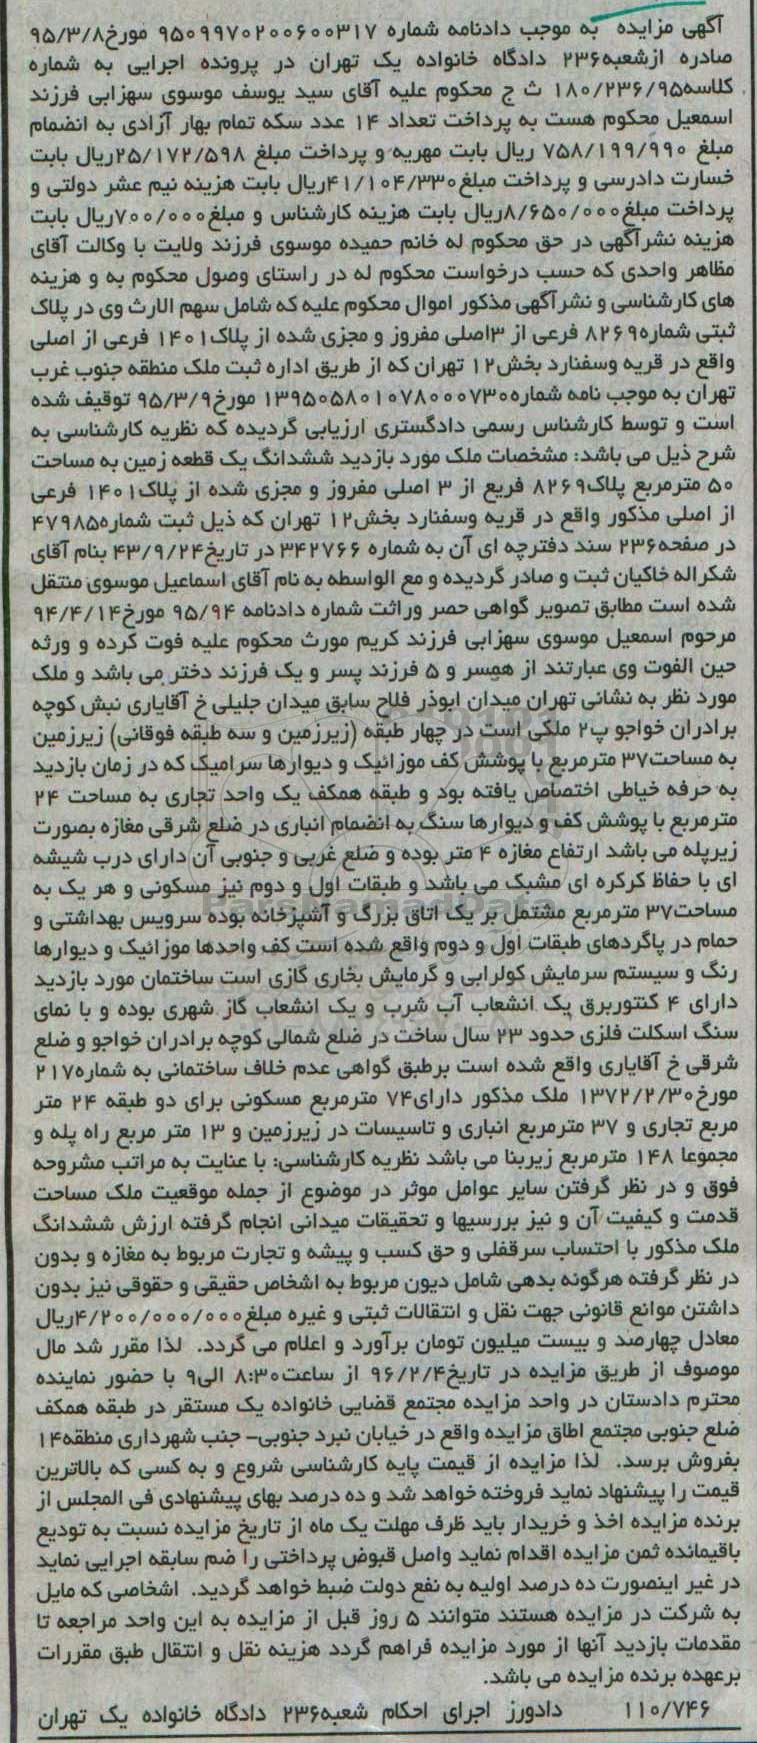 آگهی مزایده به موجب دادنامه شماره ۹۵۰۹۹۷۰۲۰۰۶۰۰۳۱۷ مورخ۹۵/۳/۸
صادره ازشعبه۲۳۶ دادگاه خانواده یک تهران در پرونده اجرایی به شماره
کلاسه۱۸۰/۲۳۶/۹۵ ث ج محکوم علیه آقای سید یوسف موسوی سهزابی فرزند
اسمعیل محکوم هست به پرداخت تعداد ۱۴ عدد سکه تمام بهار آزادی به انضمام
مبلغ ۷۵۸/۱۹۹/۹۹۰ ریال بابت مهریه و پرداخت مبلغ ۲۵/۱۷۲/۵۹۸ریال بابت
خسارت دادرسی و پرداخت مبلغ۴۱/۱۰۴/۳۳۰ریال بابت هزینه نیم عشر دولتی و
پرداخت مبلغ۸/۶۵۰/۰۰۰ریال بابت هزینه کارشناس و مبلغ۷۰۰/۰۰۰ریال بابت
هزینه نشرآگهی در حق محکوم له خانم حمیده موسوی فرزند ولایت با وکالت آقای
مظاهر واحدی که حسب درخواست محکوم له در راستای وصول محکوم به و هزینه
های کارشناسی و نشرآگهی مذکور اموال محکوم علیه که شامل سهم الارث وی در پلاک
ثبتی شماره۸۲۶۹ فرعی از ۳اصلی مفروز و مجزی شده از پلاک۱۴۰۱ فرعی از اصلی
واقع در قریه وسفنارد بخش۱۲ تهران که از طریق اداره ثبت ملک منطقه جنوب غرب
تهران به موجب نامه شماره۱۳۹۵۰۵۸۰۱۰۷۸۰۰۰۷۳۰ مورخ۹۵/۳/۹ توقیف شده
است و توسط کارشناس رسمی دادگستری ارزیابی گردیده که نظریه کارشناسی به
شرح ذیل می باشد: مشخصات ملک مورد بازدید ششدانگ یک قطعه زمین به مساحت
۵۰ مترمربع پلاک۸۲۶۹ فریع از ۳ اصلی مفروز و مجزی شده از پلاک۱۴۰۱ فرعی
از اصلی مذکور واقع در قریه وسفنارد بخش۱۲ تهران که ذیل ثبت شماره۴۷۹۸۵
در صفحه۲۳۶ سند دفترچه ای آن به شماره ۳۴۲۷۶۶ در تاریخ۴۳/۹/۲۴ بنام آقای
شکراله خاکیان ثبت و صادر گردیده و مع الواسطه به نام آقای اسماعیل موسوی منتقل
شده است مطابق تصویر گواهی حصر وراثت شماره دادنامه ۹۵/۹۴ مورخ۹۴/۴/۱۴
مرحوم اسمعیل موسوی سهزابی فرزند کریم مورث محکوم علیه فوت کرده و ورثه
حین الفوت وی عبارتند از همسر و ۵ فرزند پسر و یک فرزند دختر می باشد و ملک
مورد نظر به نشانی تهران میدان ابوذر فلاح سابق میدان جلیلی خ آقایاری نبش کوچه
برادران خواجو پ۲ ملکی است در چهار طبقه (زیرزمین و سه طبقه فوقانی) زیرزمین
به مساحت۳۷ مترمربع با پوشش کف موزائیک و دیوارها سرامیک که در زمان بازدید
به حرفه خیاطی اختصاص یافته بود و طبقه همکف یک واحد تجاری به مساحت ۲۴
مترمربع با پوشش کف و دیوارها سنگ به انضمام انباری در ضلع شرقی مغازه بصورت
زیرپله می باشد ارتفاع مغازه ۴ متر بوده و ضلع غربی و جنوبی آن دارای درب شیشه
ای با حفاظ کرکره ای مشبک می باشد و طبقات اول و دوم نیز مسکونی و هر یک به
مساحت۳۷ مترمربع مشتمل بر یک اتاق بزرگ و آشپزخانه بوده سرویس بهداشتی و
حمام در پاگردهای طبقات اول و دوم واقع شده است کف واحدها موزائیک و دیوارها
رنگ و سیستم سرمایش کولرابی و گرمایش بخاری گازی است ساختمان مورد بازدید
دارای ۴ کنتوربرق یک انشعاب آب شرب و یک انشعاب گاز شهری بوده و با نمای
سنگ اسکلت فلزی حدود ۲۳ سال ساخت در ضلع شمالی کوچه برادران خواجو و ضلع
شرقی خ آقایاری واقع شده است برطبق گواهی عدم خلاف ساختمانی به شماره۲۱۷
مورخ۱۳۷۲/۲/۳۰ ملک مذکور دارای۷۴ مترمربع مسکونی برای دو طبقه ۲۴ متر
مربع تجاری و ۳۷ مترمربع انباری و تاسیسات در زیرزمین و ۱۳ متر مربع راه پله و
مجموعا ۱۴۸ مترمربع زیربنا می باشد نظریه کارشناسی: با عنایت به مراتب مشروحه
فوق و در نظر گرفتن سایر عوامل موثر در موضوع از جمله موقعیت ملک مساحت
قدمت و کیفیت آن و نیز بررسیها و تحقیقات میدانی انجام گرفته ارزش ششدانگ
ملک مذکور با احتساب سرقفلی و حق کسب و پیشه و تجارت مربوط به مغازه و بدون
در نظر گرفته هرگونه بدهی شامل دیون مربوط به اشخاص حقیقی و حقوقی نیز بدون
داشتن موانع قانونی جهت نقل و انتقالات ثبتی و غیره مبلغ۴/۲۰۰/۰۰۰/۰۰۰ریال
معادل چهارصد و بیست میلیون تومان برآورد و اعلام می گردد. لذا مقرر شد مال
موصوف از طریق مزایده در تاریخ۹۶/۲/۴ از ساعت۸:۳۰ الی۹ با حضور نماینده
محترم دادستان در واحد مزایده مجتمع قضایی خانواده یک مستقر در طبقه همکف
ضلع جنوبی مجتمع اطاق مزایده واقع در خیابان نبرد جنوبی- جنب شهرداری منطقه۱۴
بفروش برسد. لذا مزایده از قیمت پایه کارشناسی شروع و به کسی که بالاترین
قیمت را پیشنهاد نماید فروخته خواهد شد و ده درصد بهای پیشنهادی فی المجلس از
برنده مزایده اخذ و خریدار باید ظرف مهلت یک ماه از تاریخ مزایده نسبت به تودیع
باقیمانده ثمن مزایده اقدام نماید واصل قبوض پرداختی را ضم سابقه اجرایی نماید
در غیر اینصورت ده درصد اولیه به نفع دولت ضبط خواهد گردید. اشخاصی که مایل
به شرکت در مزایده هستند متوانند ۵ روز قبل از مزایده به این واحد مراجعه تا
مقدمات بازدید آنها از مورد مزایده فراهم گردد هزینه نقل و انتقال طبق مقررات
برعهده برنده مزایده می باشد.
۱۱۰/۷۴۶ دادورز اجرای احکام شعبه۲۳۶ دادگاه خانواده یک تهران